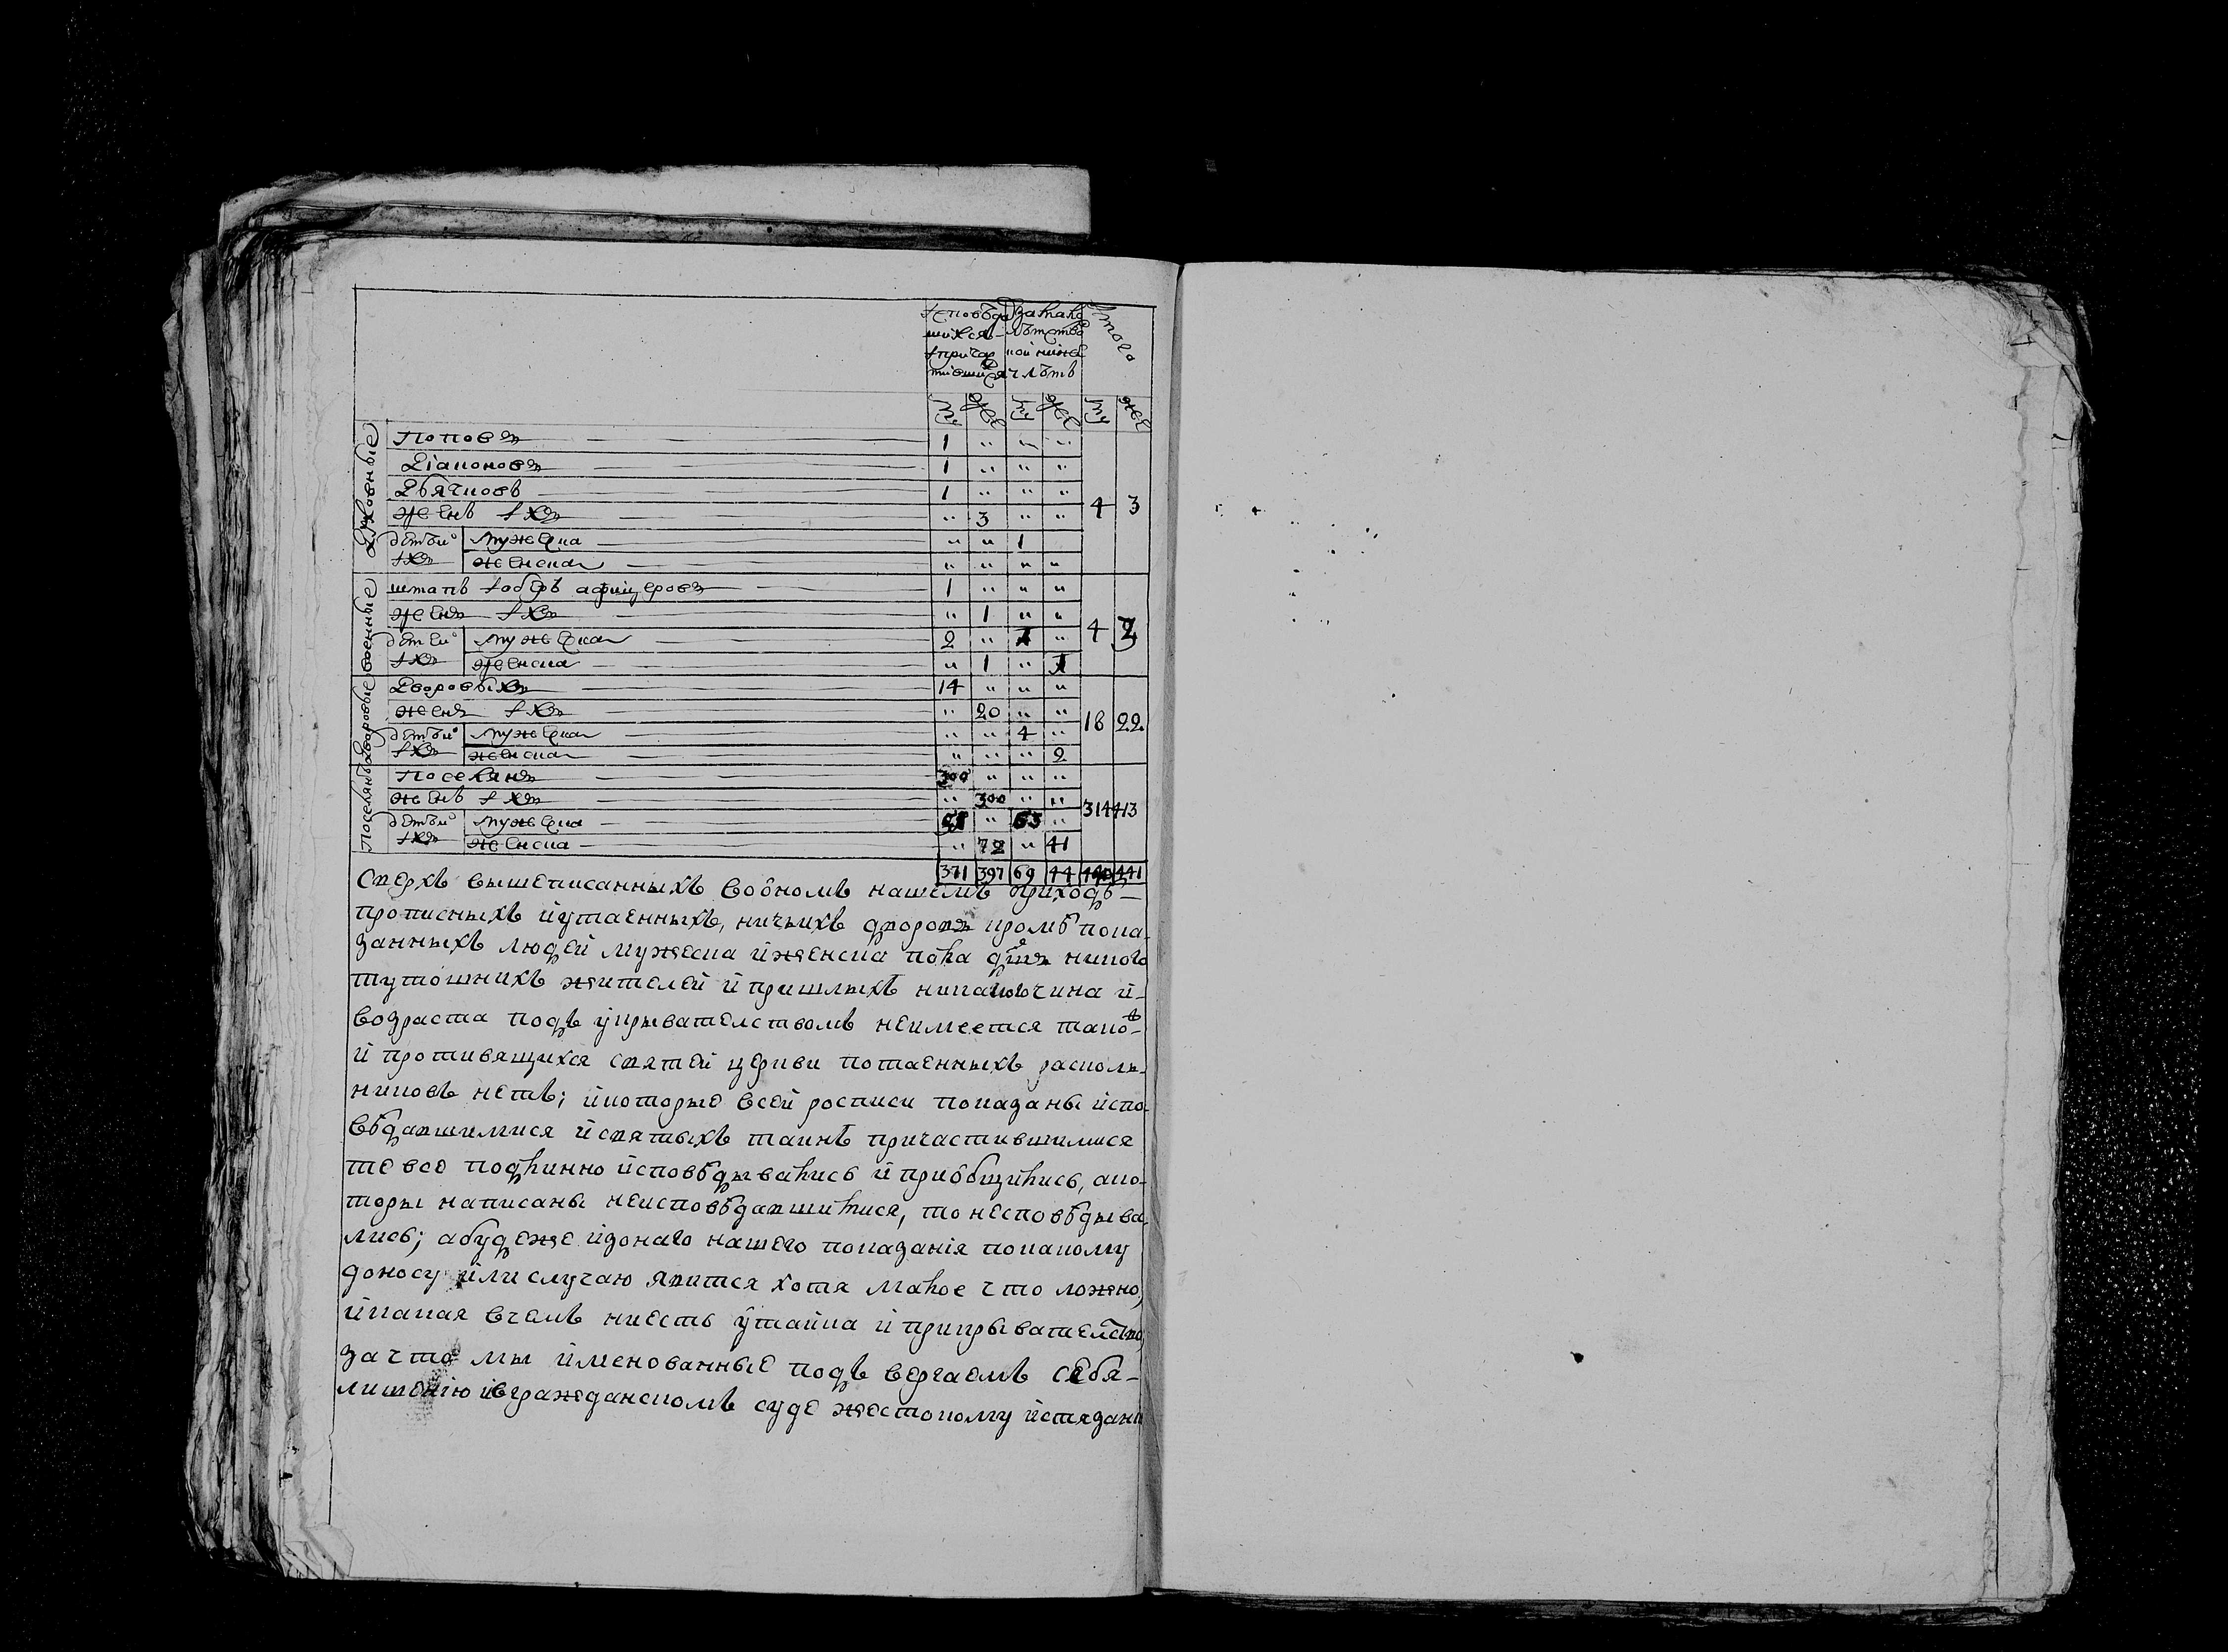 Исповѣда За мало Итого
шихся лѣтство
и причас коиниже
тившихся 7 лѣтъ
му же му же му же
Духовные
Поповъ 1 " " "
Діаконовъ 1 " " "
Дьячковъ 1 " " " 4 3
женъ ихъ " 3 " "
дѣтѣй мужеска " " 1
ихъ женска " " " "
военные
штапъ и оберъ афицеровъ 1 " " "
женъ ихъ " 1 " "
дѣтеи мужеска 2 " 1 " 4
ихъ женска " 1 " 1
дворовые
Дворовыхъ 14 " " "
женъ ихъ " 20 " " 18 22
дѣтѣи мужеска " " 4 "
ихъ женска " " " 2
Поселянъ
Поселянъ 300 " " "
женъ ихъ " 300 " " 314 413
дѣтѣи мужеска " 63 "
ихъ женска " 72 " 41
371 397 69 44 441
Сверхъ вышеписанныхъ воономъ нашемъ приходѣ
прописныхъ и утаенныхъ, ничьихъ дворовъ кромѣ пока-
занныхъ людей мужеска и женска пола душъ никого
тутошнихъ жителей и пришлыхъ никаково чина и
возраста подъ укрывателствомъ неимеется тако
и противящихся святей церкви потаенныхъ расколь-
никовъ нетъ; и которые всей росписи показаны испо-
вѣдавшимися и святыхъ таинъ причастившимися
те все подлинно исповѣдывались и приобщились, ако-
торы написаны неисповѣдавшимися, то несповѣдыва-
лись; абудеже идонаго нашего показанія покакому
доносу или случаю явится хотя малое что ложно,
и какая вчемъ ниесть утайка и прикрывателство,
за что мы именованные подъ вергаемъ себя
лишенію ивгражданскомъ суде жестокому истязани